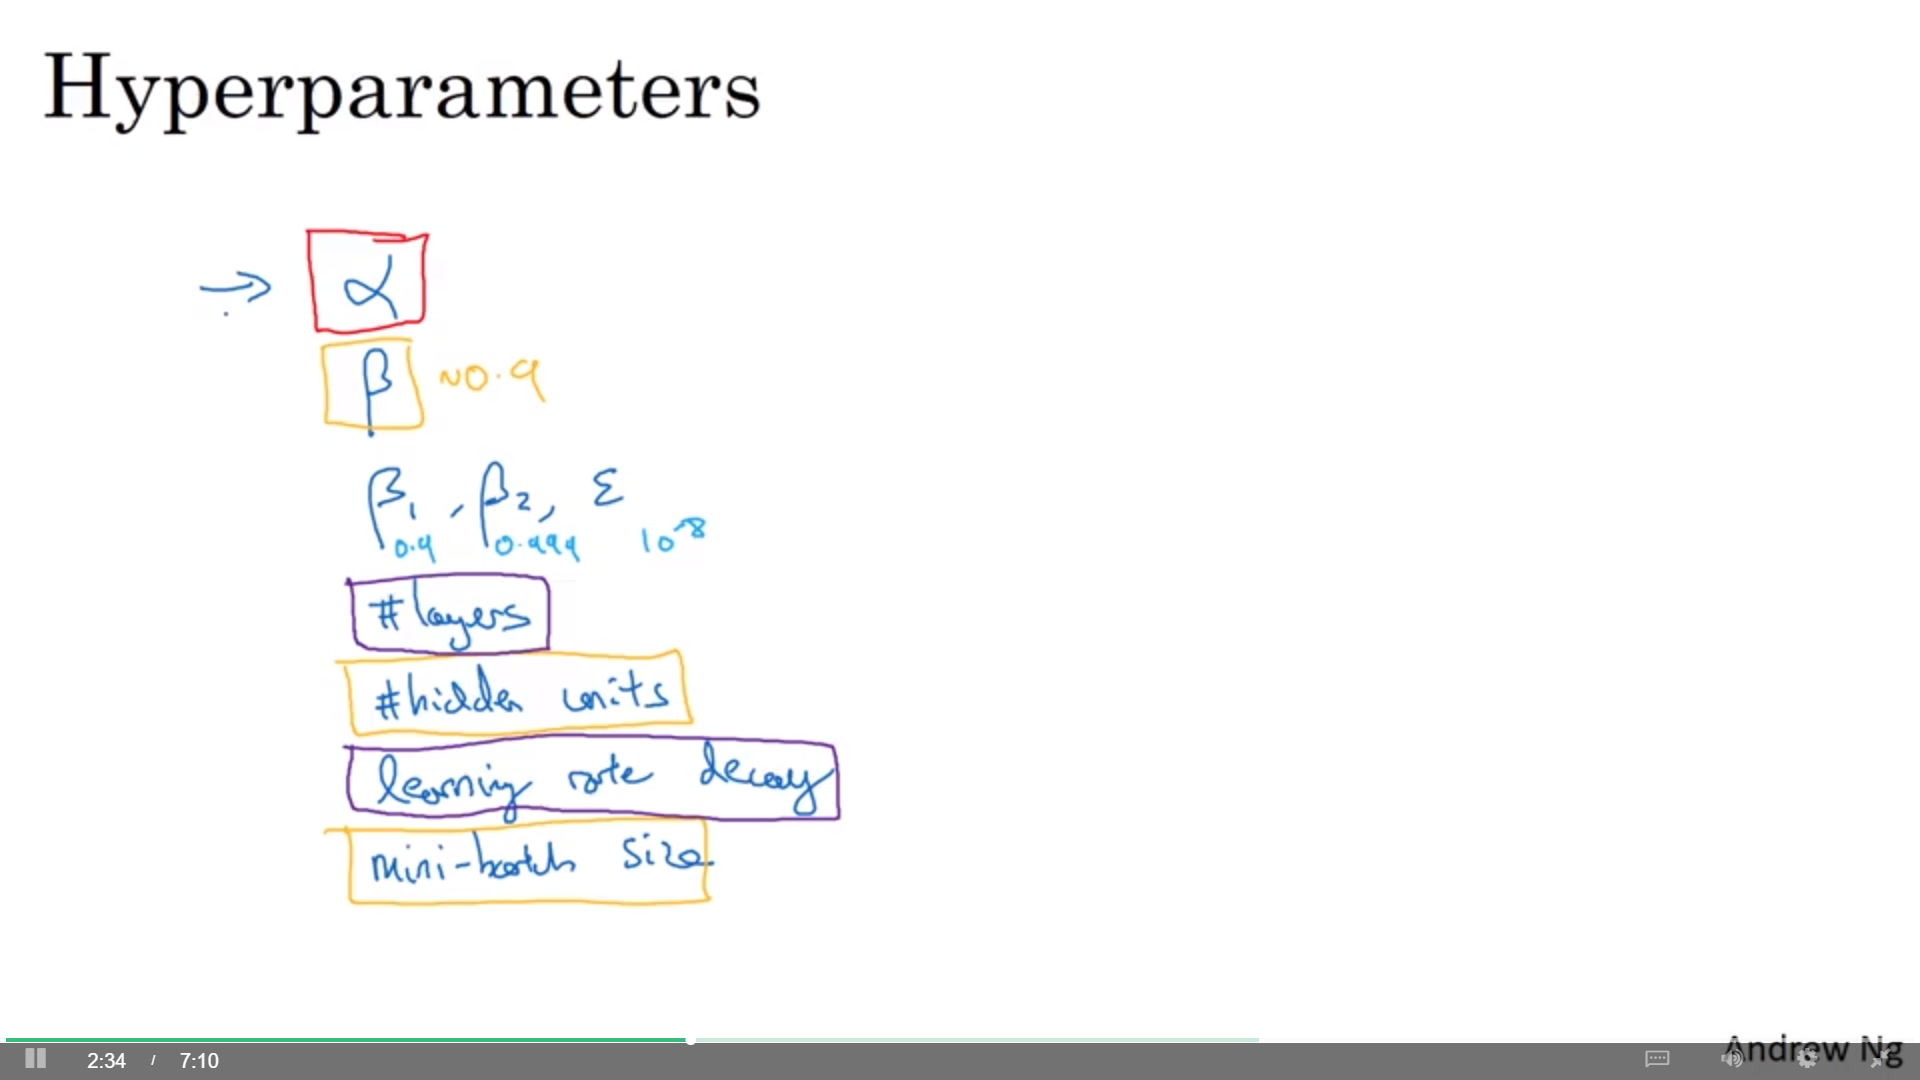 Hyperparameters
→ α
β ~0.9
β₁, β₂, ε
0.9 0.999 10⁻⁸
#layers
#hidden units
learning rate decay
mini-batch size
Andrew Ng
2:34 / 7:10